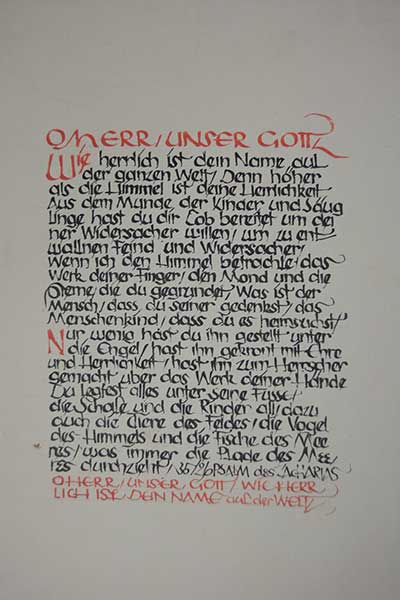 O HERR/UNSER GOTT/
Wie herrlich ist dein Name auf
der ganzen Welt/Denn höher
als die Himmel ist deine Herrlichkeit
Aus dem Munde der Kinder und Säug
linge hast du dir Lob bereitet um dei
ner Widersacher willen/um zu ent
waffnen Feind und Widersacher/
Wenn ich den Himmel betrachte/das
Werk deiner Finger/den Mond und die
Sterne/die du gegründet/Was ist der
Mensch/dass du seiner gedenkst/das
Menschenkind/dass du es heimsuchst/
Nur wenig hast du ihn gestellt unter
die Engel/hast ihn gekrönt mit Ehre
und Herrlichkeit/hast ihn zum Herrscher
gemacht über das Werk deiner Hände
Du legtest alles unter seine Füsse/
die Schafe und die Rinder all/dazu
auch die Tiere des Feldes/die Vögel
des Himmels und die Fische des Mee
res/was immer die Pfade des Mee
res durchzieht/ PSALM des
O HERR/UNSER GOTT/WIE HERR
LICH IST DEIN NAME auf der WELT/